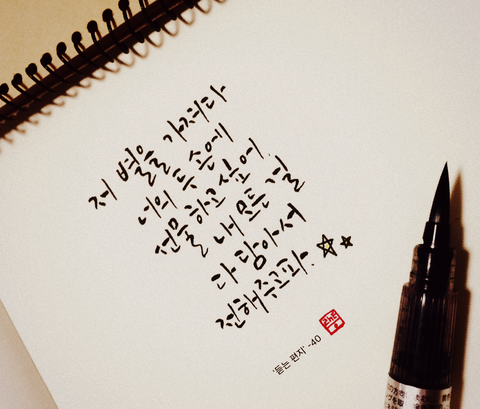 저 별을 가져다
너의 두 손에
선물하고 싶어.
날 내 모든 걸
다 담아서
전해주고파.
'듣는 편지' -40